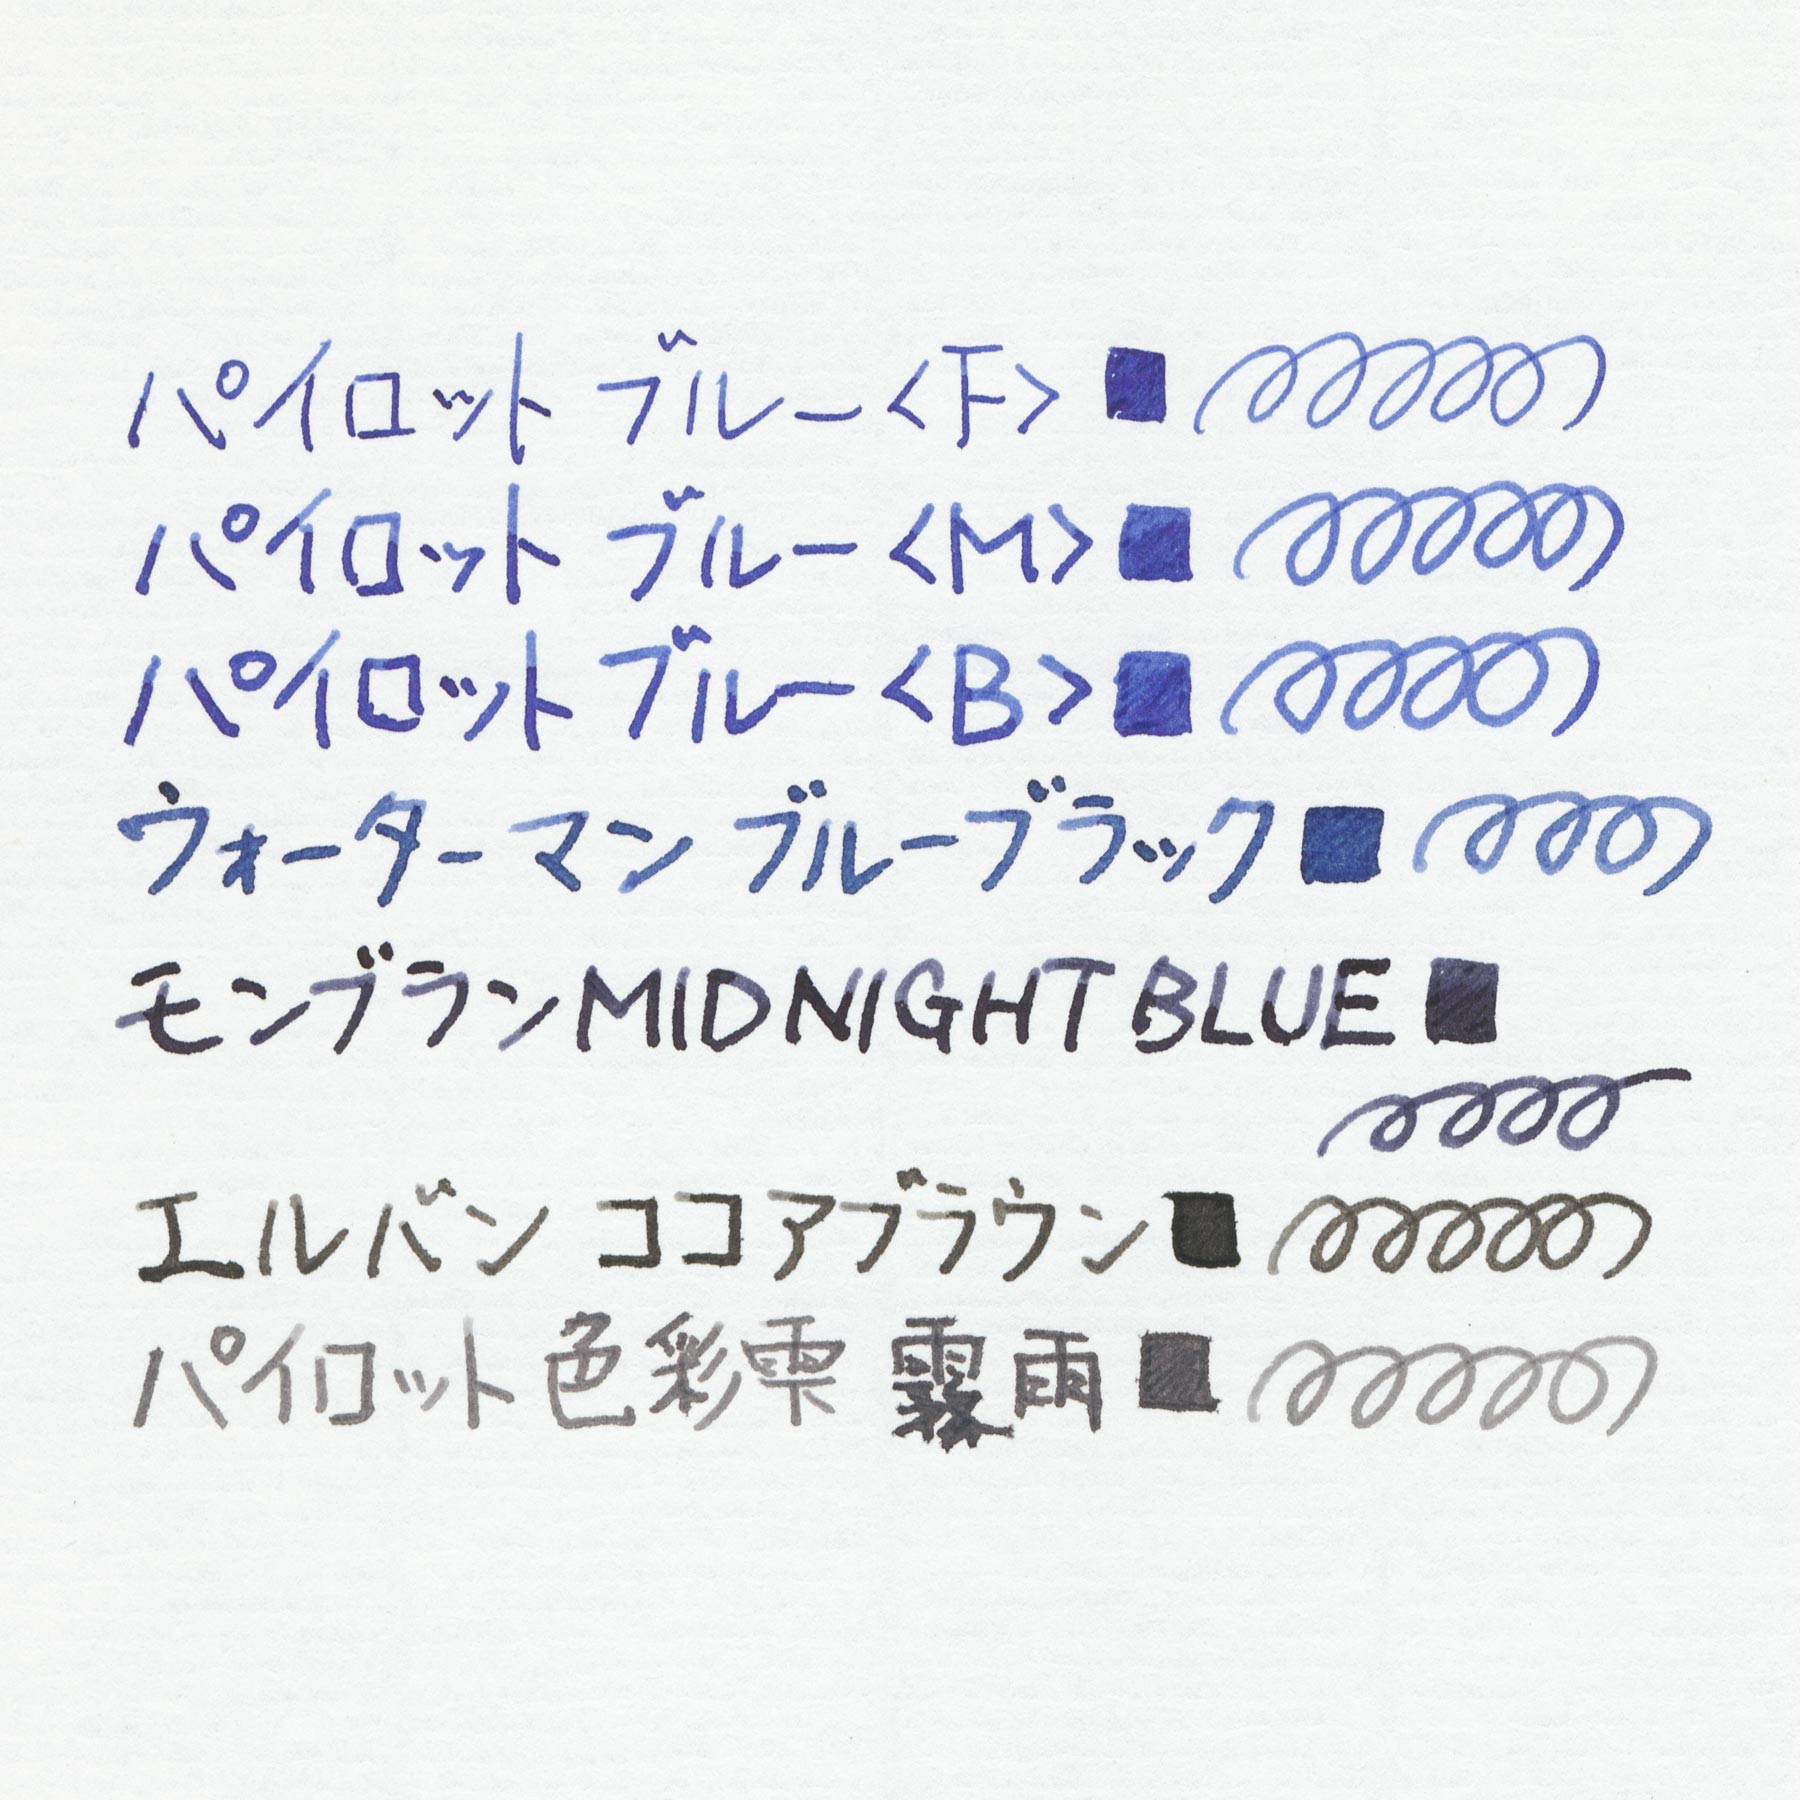 パイロット ブルー<F>
パイロット ブルー<M>
パイロット ブルー<B>
ウォーターマン ブルーブラック
モンブランMIDNIGHT BLUE
エルバン ココアブラウン
パイロット色彩雫 霧雨